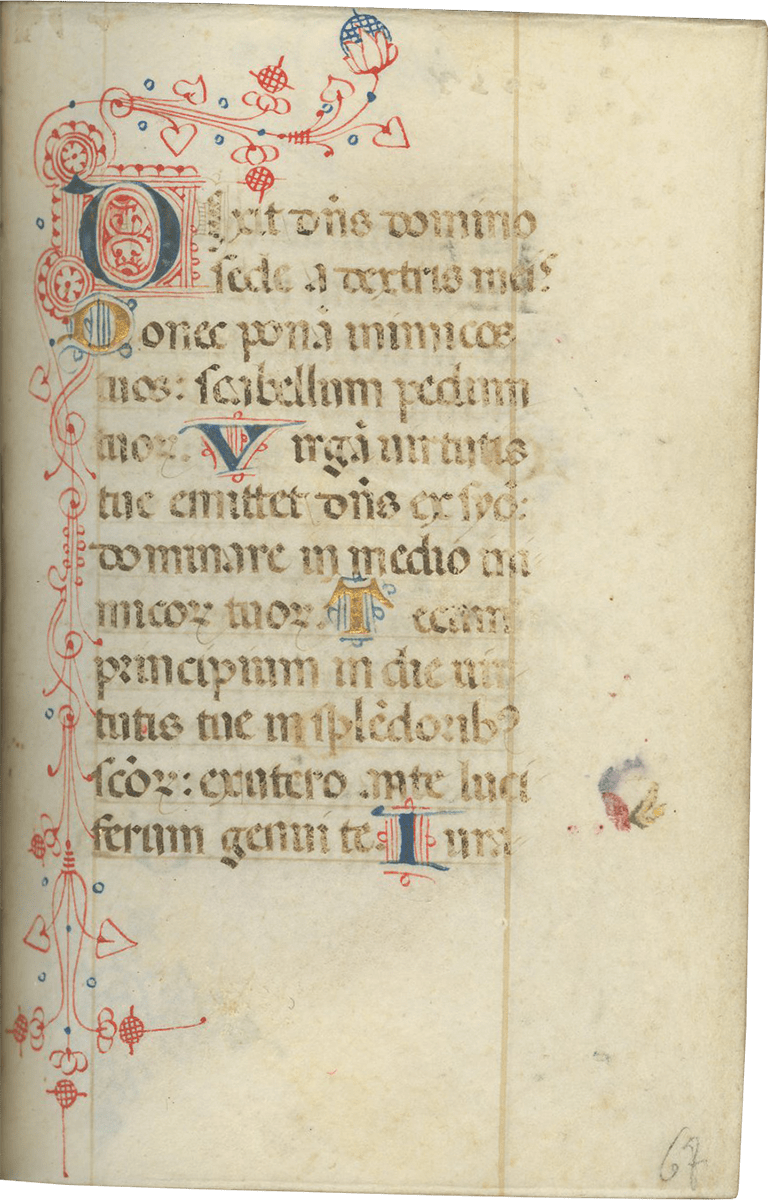 Dixit dn̄s domino
sede a dextris meis
Donec ponā inimicos
tuos: scabellum pedum
tuoꝝ. Virgā uirtutis
tue emittet dn̄s ex syō:
dominare in medio ini
micoꝝ tuoꝝ. Tecum
principium in die uir
tutis tue in splēdoribꝰ
scōꝝ: ex utero ante luci
ferum genui te. Iura
67